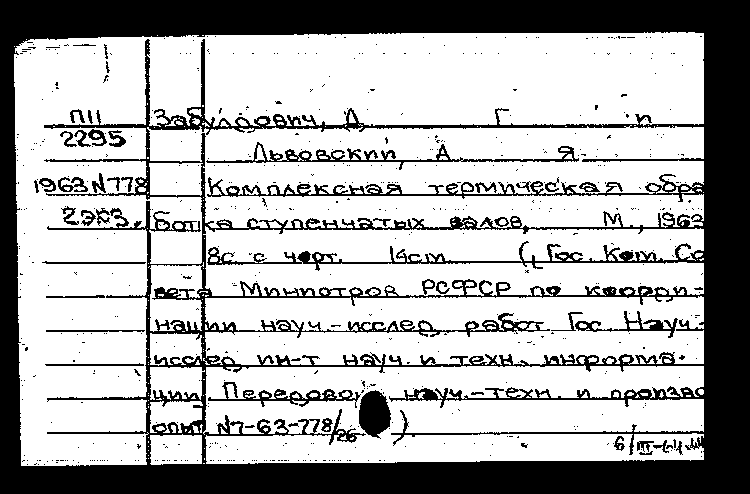 П11 Забулдович, Д. Г. и
2295
Львовский, А. Я.
1963 N778 Комплексная термическая обра
2экз. ботка ступенчатых валов, М., 1963
8с с черт. 14см. (Гос. Ком. Со
вета Министров РСФСР по коорди-
нации науч.-исслед. работ. Гос. Науч.-
исслед. ин-т науч. и техн. информа-
ции. Передовой науч.-техн. и произво
опыт N7-63-778/26).
6/III-64